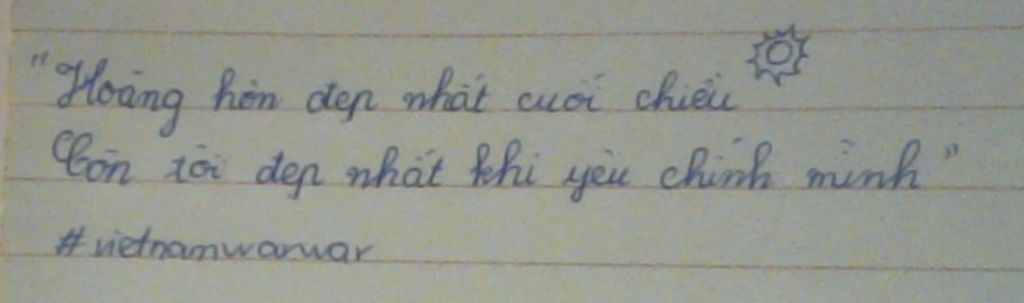 "Hoàng hôn đẹp nhất cuối chiều
Còn tôi đẹp nhất khi yêu chính mình"
#vietnamwarwar